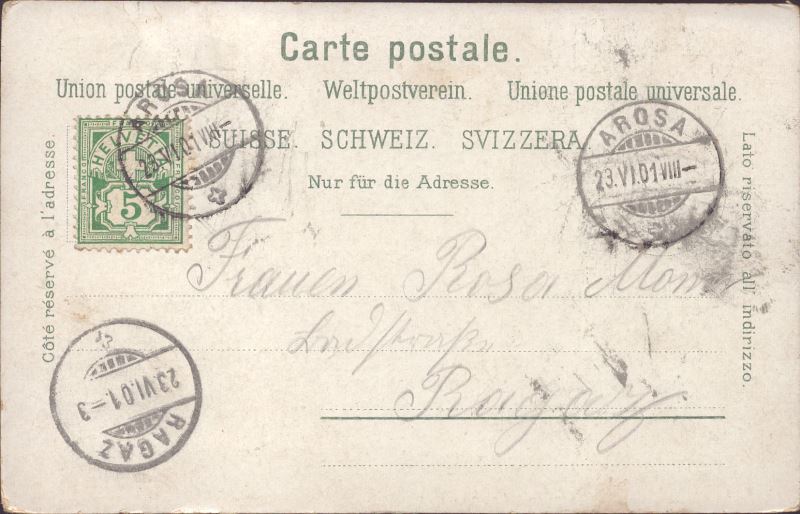 Carte postale.
Union postale universelle. Weltpostverein. Unione postale universale.
SUISSE. SCHWEIZ. SVIZZERA.
Nur für die Adresse.
Côté réservé à l'adresse.
Lato riservato all' indirizzo.
HELVETIA
5
AROSA
23.VI.01 VIII–
AROSA
23.VI.01 VIII–
Frauen Rosa
Badstraße
Ragaz
23.VI.01–3
RAGAZ